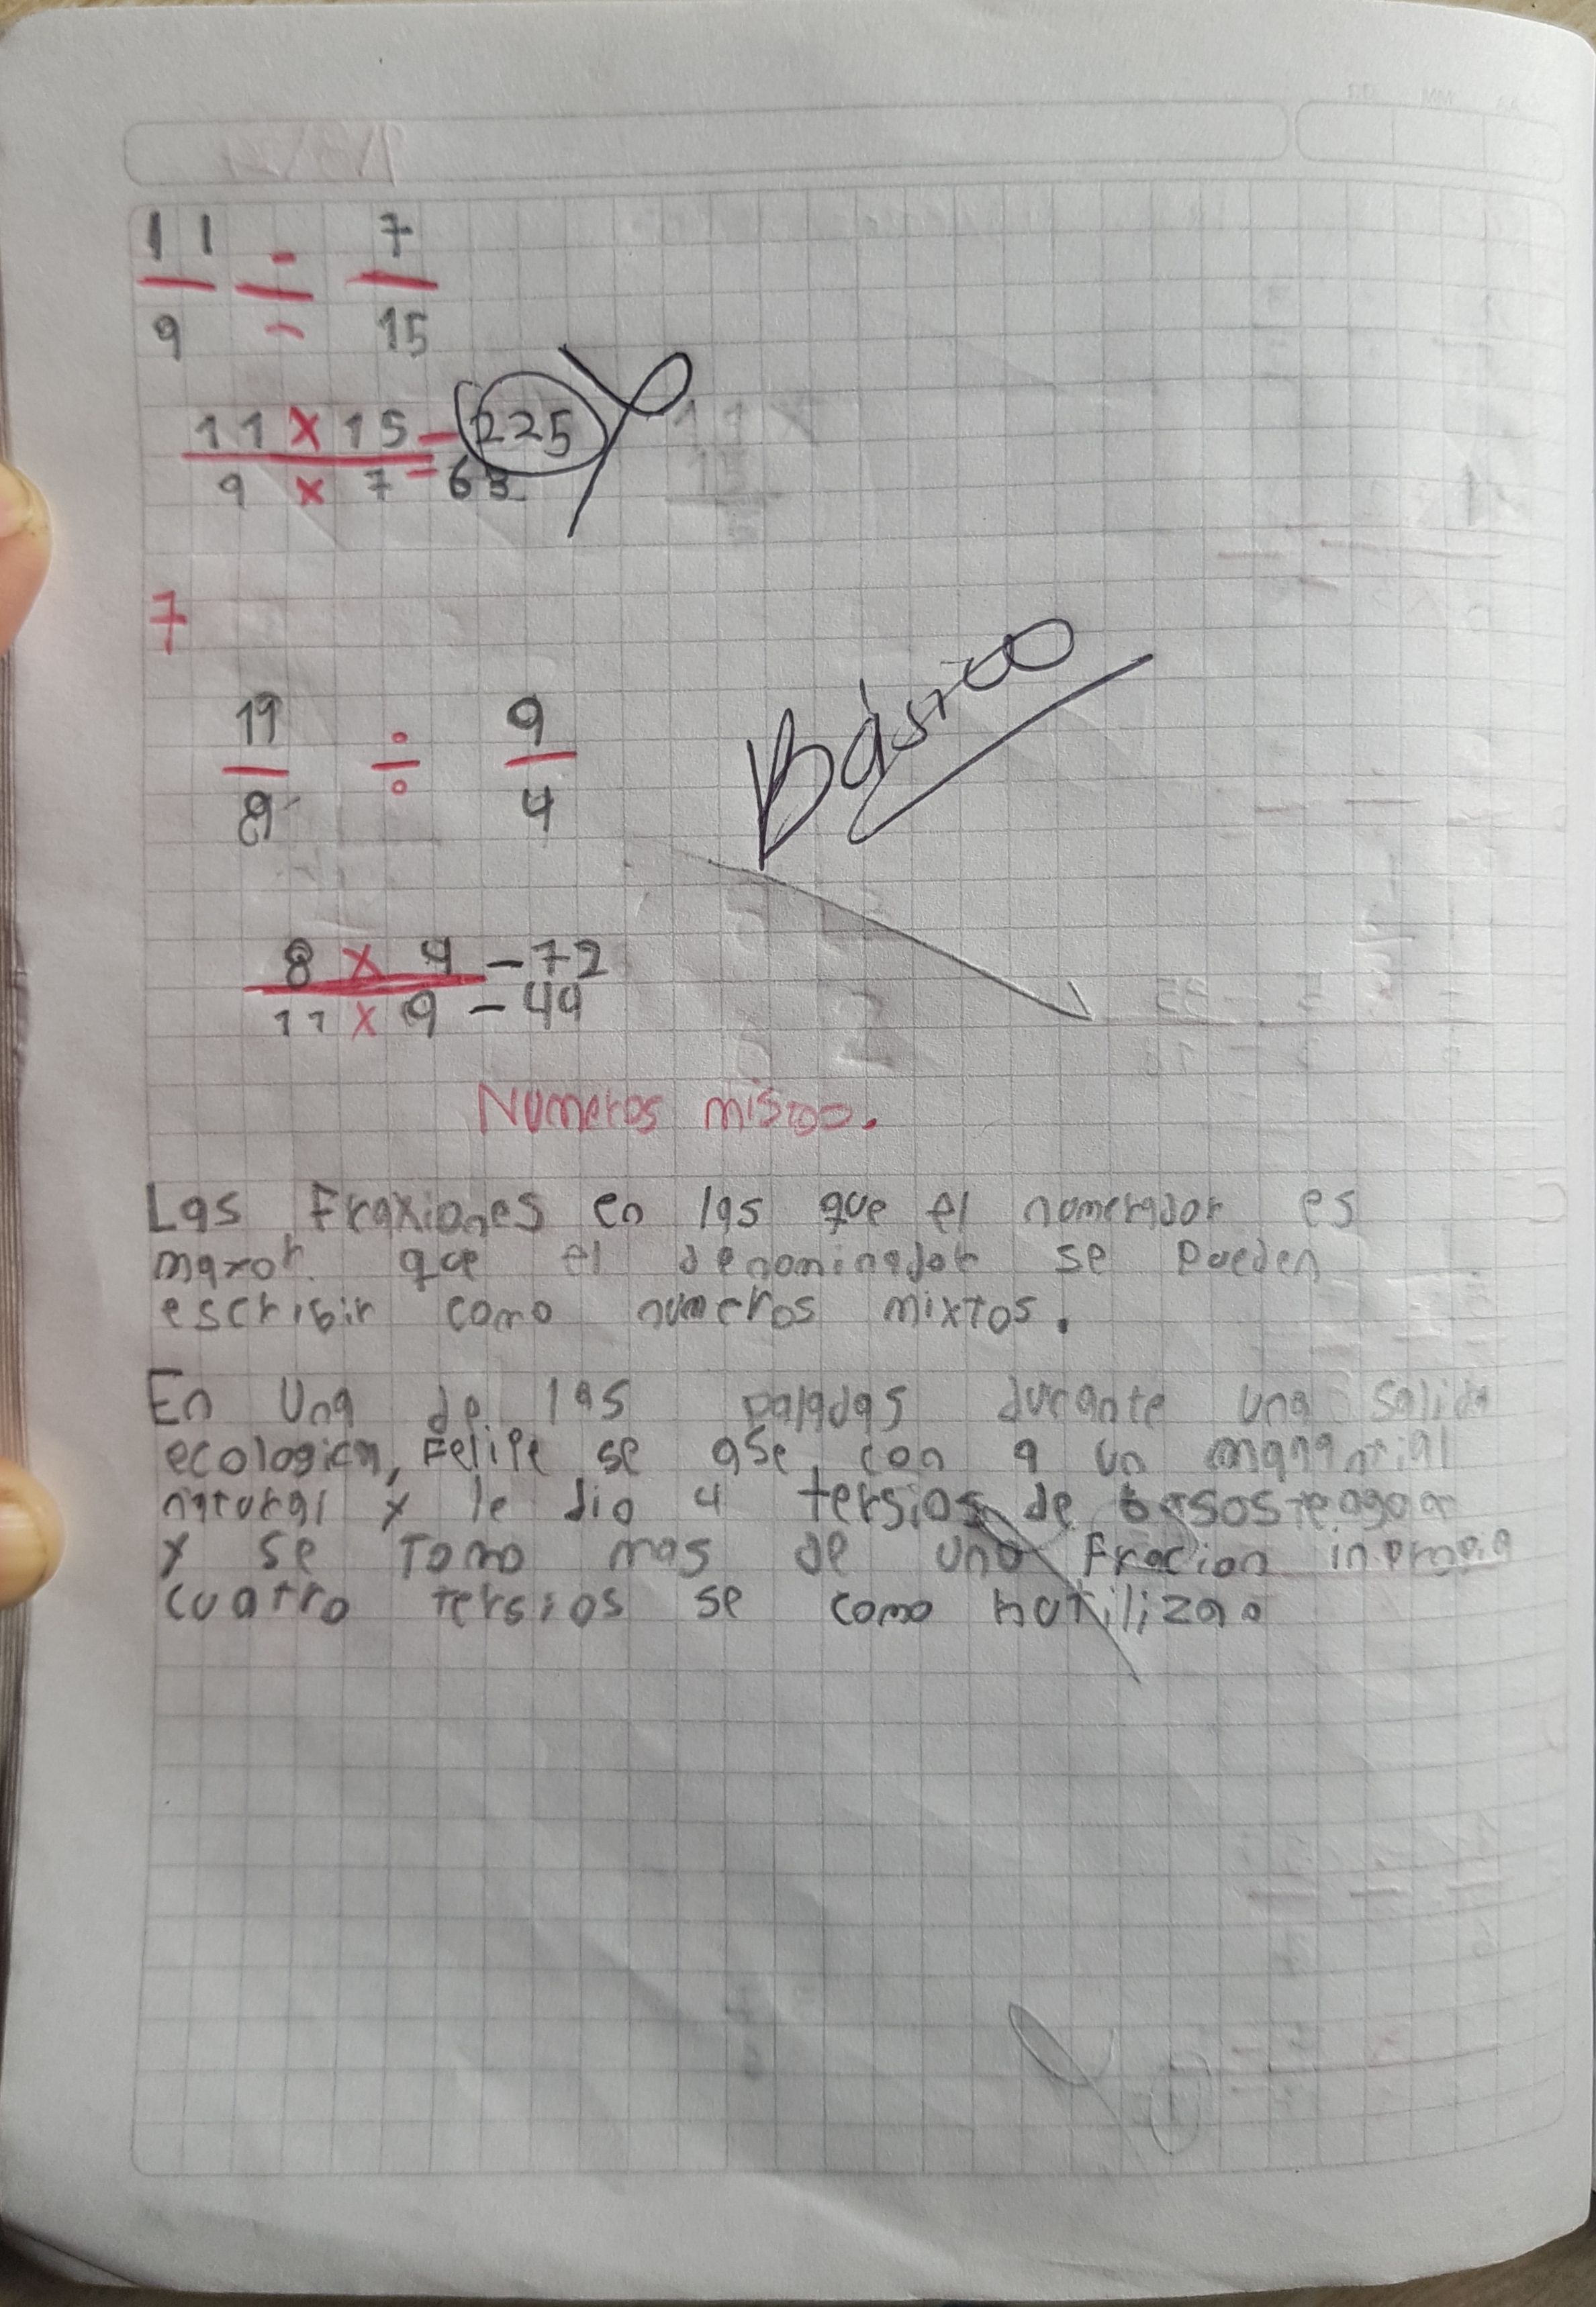 11 ÷ 7
9 15
11 x 15 - 225
9 x 7 = 63
7
19 ÷ 9
8 4
8 x 4 - 72
11 x 9 - 44
Básico
Numeros
Las Fraxiones en las que el numerador es
mayor que el denominador se pueden
escribir como numeros mixtos.
En una de las paladas durante una salida
ecologica, Felipe se ase con a un manantial
natural y le dio 4 tersios de basos de agua
y se Tomo mas de una Fracion
cuatro tersios se como hutiliza.